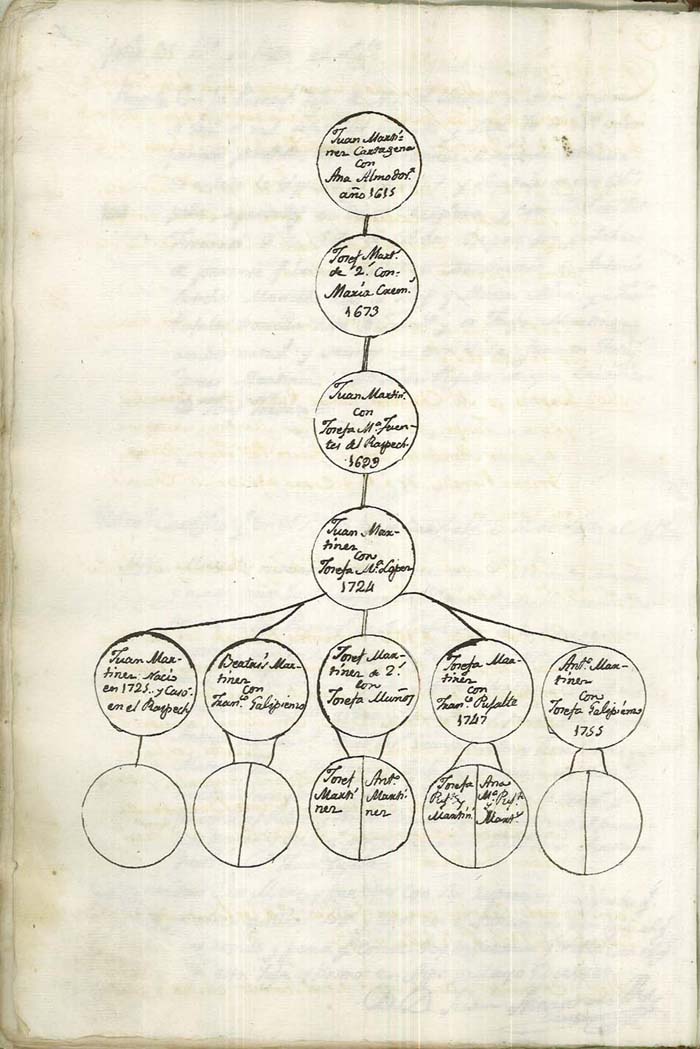 Juan Martí-
nez Cartagena
con
Ana Almodov.ʳ
año 1615
Josef Mart.ˢ
de 2.ˢ Con-
María
1673
Juan Martin.ˢ
con
Josefa M.ª Fuen-
tes del Raspech
Juan Mar-
tínez
con
Josefa M.ª López
1724
Juan Mar-
tinez. Nació
en 1725. y Casó.
en el Raspech
Beatris Mar-
tinez
con
Fran.ᶜᵒ Galipienso
Josef Mar-
tínez de 2.ˢ
con
Josefa Muños
Josefa Mar-
tínez
con
Fran.ᶜᵒ Pujalte
1747
Ant.º Mar-
tínez
con
Josefa Galipienso
1755
Josef
Martí
nez
Ant.º
Martí-
nez
Josefa
Puj.ᵉ y
Martin.ˢ
Ana
M.ª Puj.ᵉ
y
Mart.ˢ